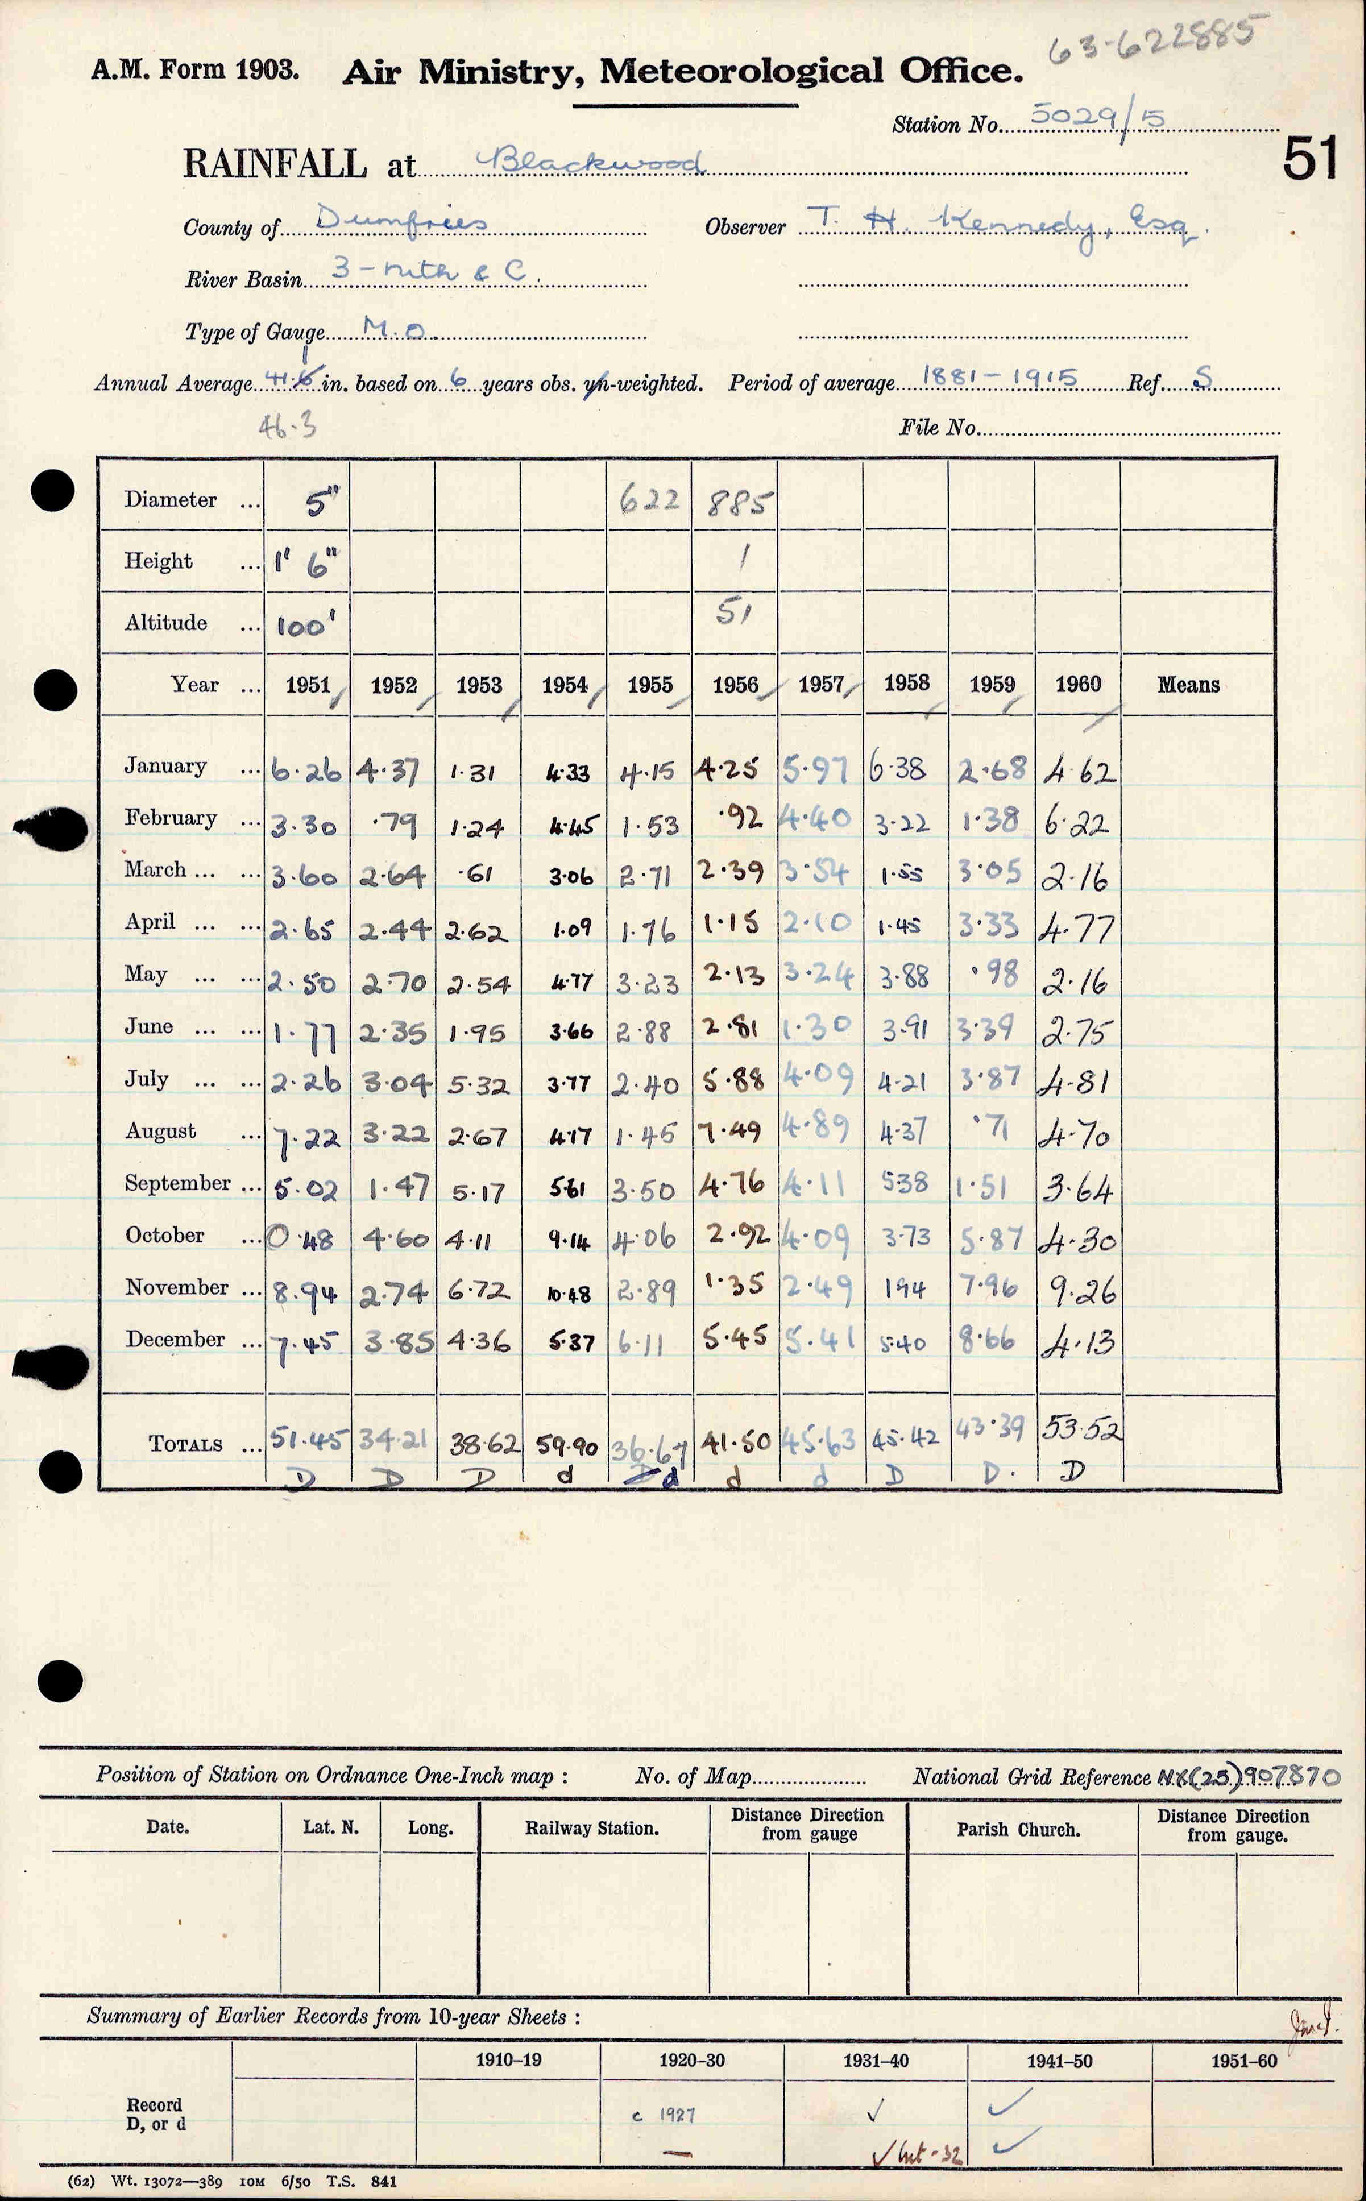 63-622885
A.M. Form 1903. Air Ministry, Meteorological Office.
Station No. 5029/5
RAINFALL at Blackwood 51
County of Dumfries Observer T. H. Kennedy, Esq.
River Basin 3 - Nith & C.
Type of Gauge M.O.
Annual Average 41.6 in. based on 6 years obs. un-weighted. Period of average 1881-1915 Ref. S
46.3 File No.
Diameter ... 5" 622 885
Height ... 1' 6" 1
Altitude ... 100' 51
Year ... 1951 1952 1953 1954 1955 1956 1957 1958 1959 1960 Means
January ... 6.26 4.37 1.31 4.33 4.15 4.25 5.97 6.38 2.68 4.62
February ... 3.30 .79 1.24 4.45 1.53 .92 4.40 3.22 1.38 6.22
March ... ... 3.60 2.64 .61 3.06 2.71 2.39 3.54 1.55 3.05 2.16
April ... ... 2.65 2.44 2.62 1.09 1.76 1.15 2.10 1.45 3.33 4.77
May ... ... 2.50 2.70 2.54 4.77 3.23 2.13 3.24 3.88 .98 2.16
June ... ... 1.77 2.35 1.95 3.66 2.88 2.81 1.30 3.91 3.39 2.75
July ... ... 2.26 3.04 5.32 3.77 2.40 5.88 4.09 4.21 3.87 4.81
August ... 7.22 3.22 2.67 4.17 1.45 7.49 4.89 4.37 .71 4.70
September ... 5.02 1.47 5.17 5.61 3.50 4.76 4.11 5.38 1.51 3.64
October ... 0.48 4.60 4.11 9.14 4.06 2.92 4.09 3.73 5.87 4.30
November ... 8.94 2.74 6.72 10.48 2.89 1.35 2.49 1.94 7.96 9.26
December ... 7.45 3.85 4.36 5.37 6.11 5.45 5.41 5.40 8.66 4.13
TOTALS ... 51.45 34.21 38.62 59.90 36.67 41.50 45.63 45.42 43.39 53.52
D D D d d d d D D. D
Position of Station on Ordnance One-Inch map : No. of Map National Grid Reference NX(25)907870
Date. Lat. N. Long. Railway Station. Distance Direction from gauge Parish Church. Distance Direction from gauge.
Summary of Earlier Records from 10-year Sheets :
1910-19 1920-30 1931-40 1941-50 1951-60
Record c 1927 ✓ ✓
D, or d — ✓ ✓
(62) Wt. 13072—389 10M 6/50 T.S. 841